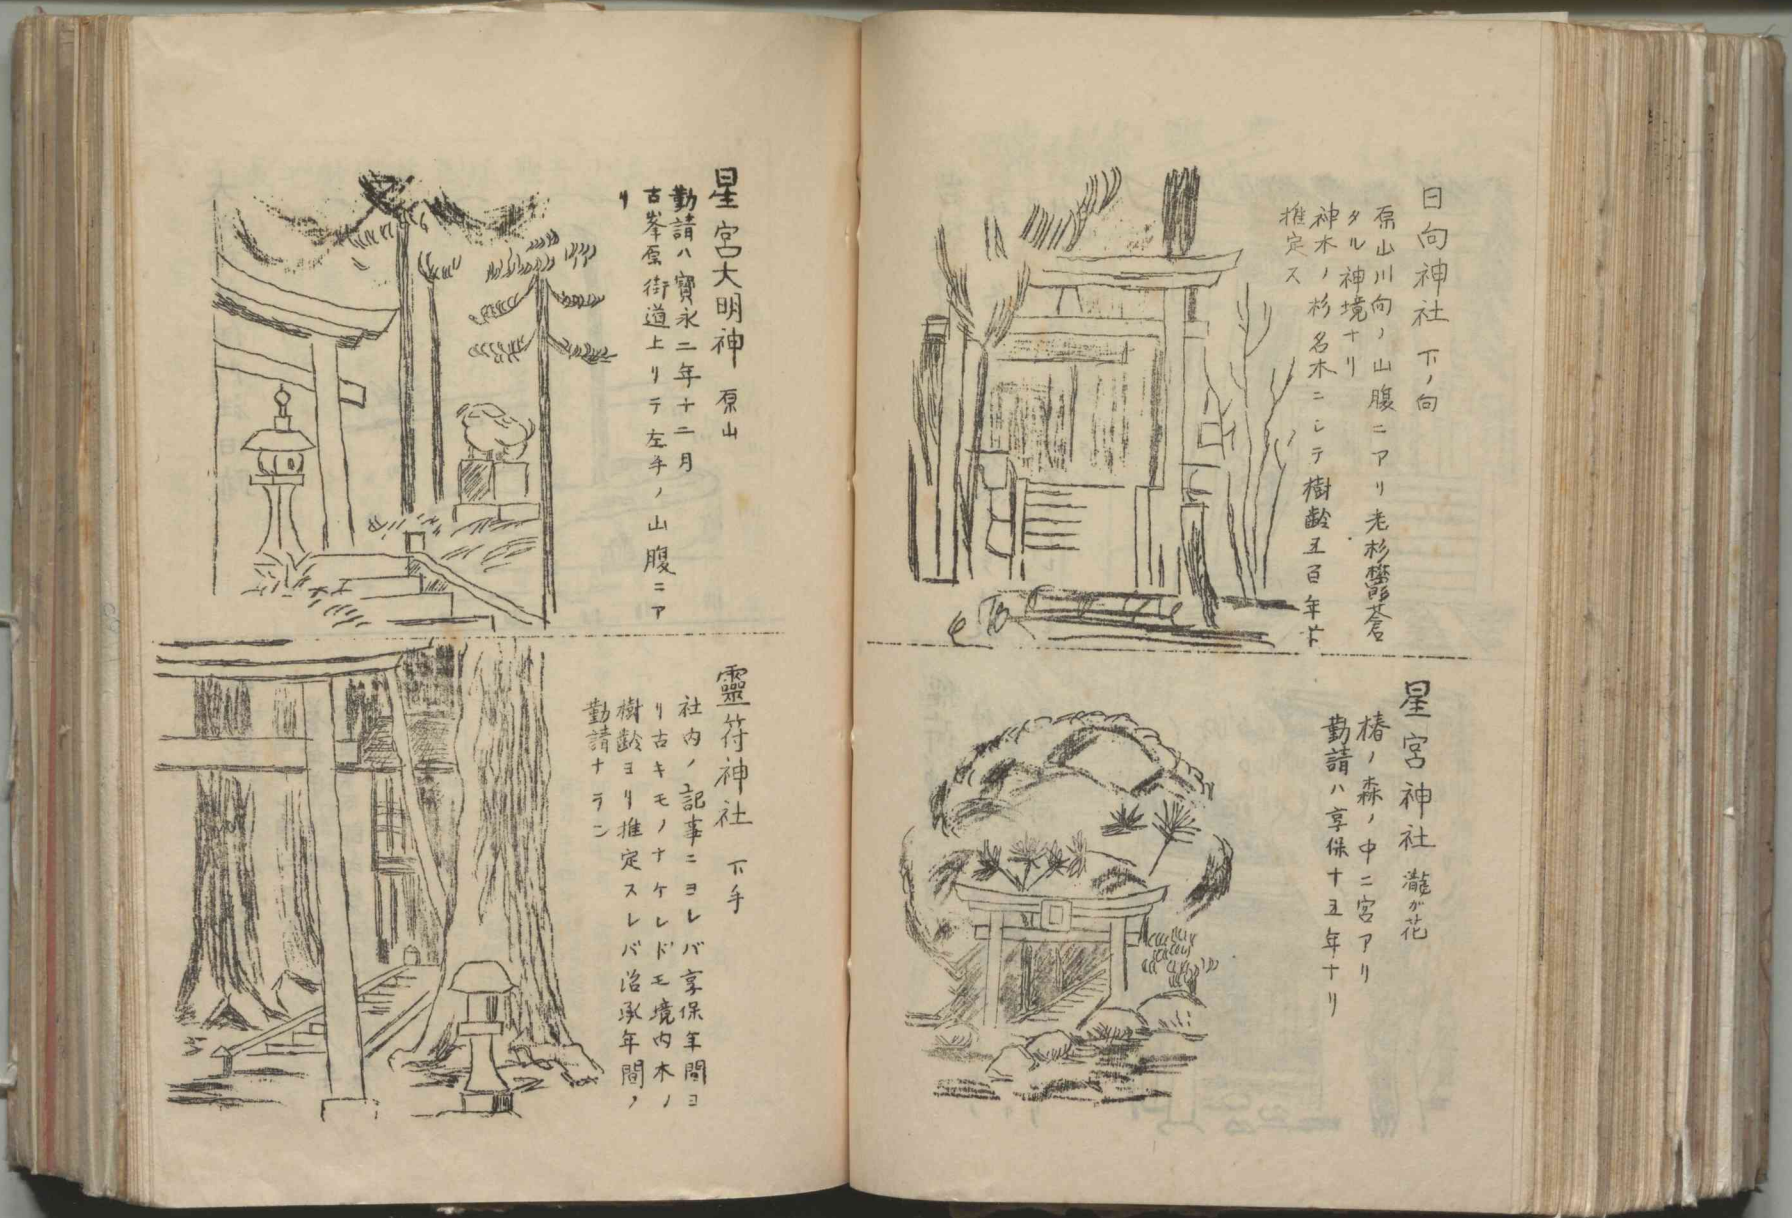 日向神社 下ノ向
原山川向ノ山腹ニアリ老杉鬱蒼
タル神境ナリ
神木ノ杉名木ニシテ樹齢五百年ト
推定ス
星宮神社 瀧が花
椿ノ森ノ中ニ宮アリ
勸請ハ享保十五年ナリ
星宮大明神 原山
勸請ハ寳永二年十二月
古峯原街道上リテ左手ノ山腹ニア
リ
靈符神社 下手
社内ノ記事ニヨレバ享保年間ヨ
リ古キモノナケレドモ境内木ノ
樹齢ヨリ推定スレバ治承年間ノ
勸請ナラン